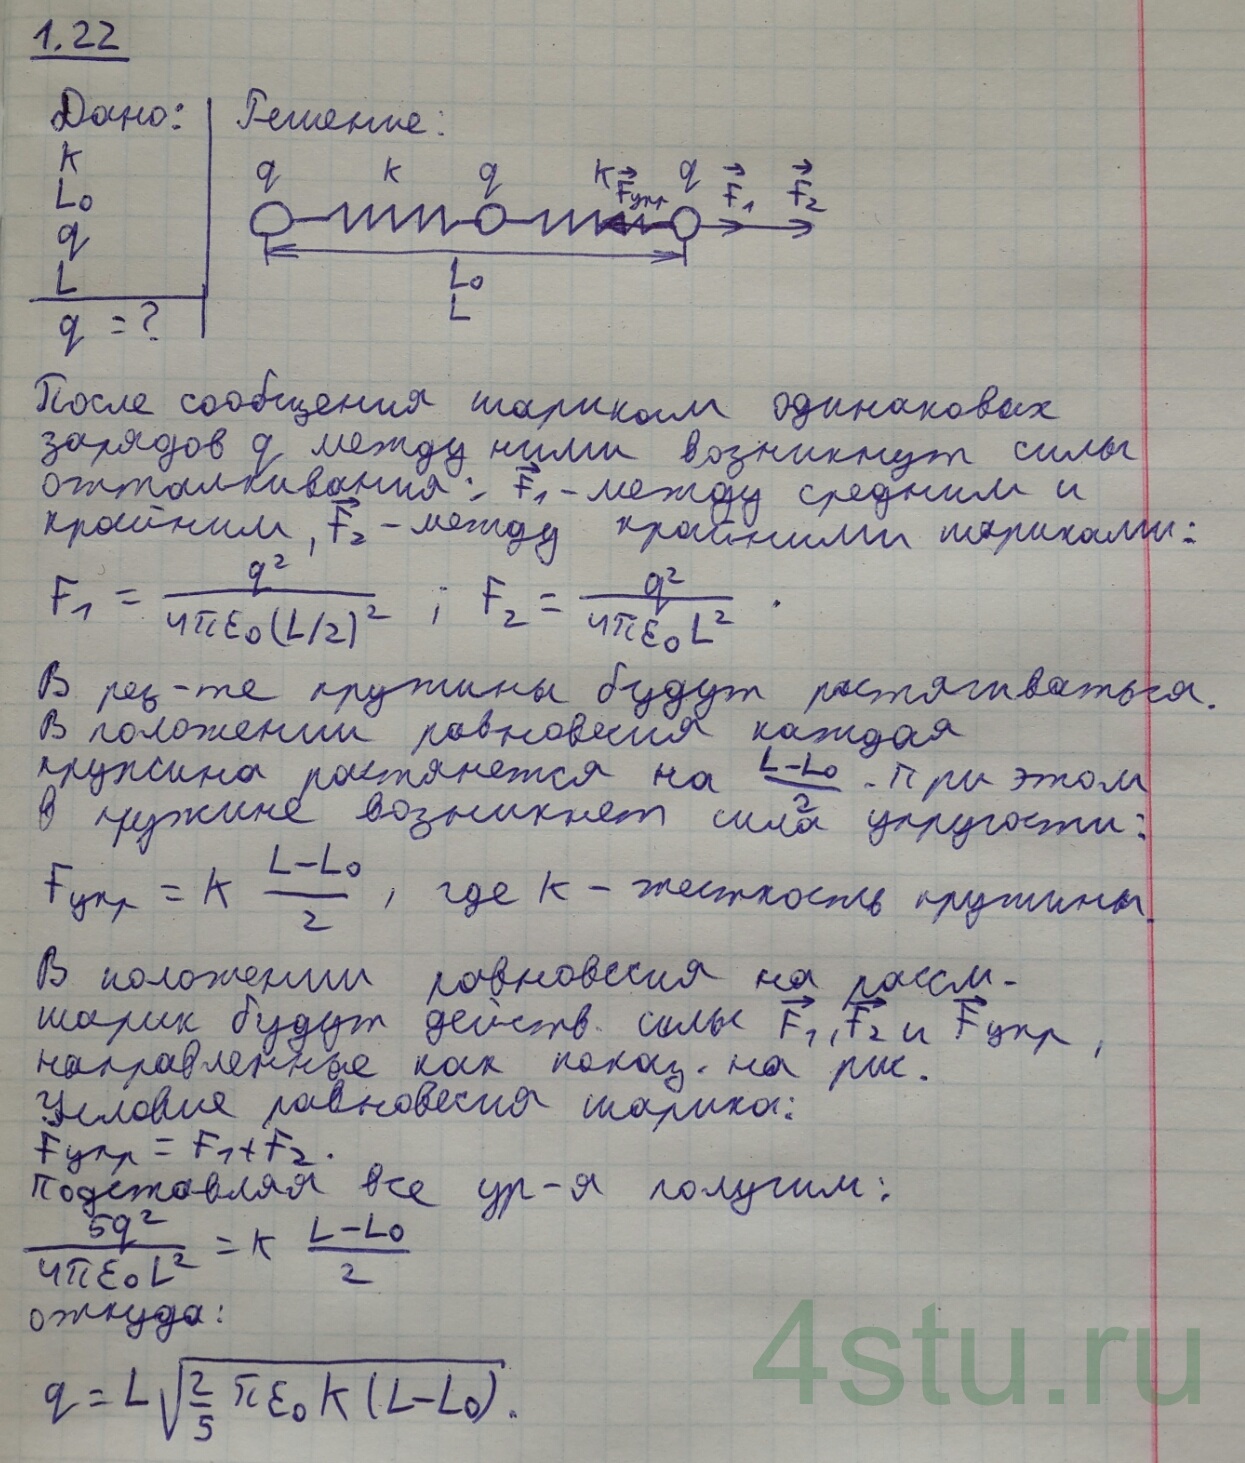 1.22
Дано: Решение:
k
L₀
q
L
q = ?
q k q k F⃗упр q F⃗₁ F⃗₂
L₀
L
После сообщения шарикам одинаковых
зарядов q между ними возникнут силы
отталкивания: F⃗₁ - между средним и
крайним, F⃗₂ - между крайними шариками:
F₁ = q²/(4πε₀(L/2)²) ; F₂ = q²/(4πε₀L²) .
В рез-те пружины будут растягиваться.
В положении равновесия каждая
пружина растянется на (L-L₀)/2. При этом
в пружине возникнет сила упругости:
Fупр = k (L-L₀)/2 , где k - жесткость пружины.
В положении равновесия на рассм.
шарик будут действ. силы F⃗₁, F⃗₂ и F⃗упр,
направленные как показ. на рис.
Условие равновесия шарика:
Fупр = F₁ + F₂.
Подставляя все ур-я получим:
5q²/(4πε₀L²) = k (L-L₀)/2
откуда:
q = L√(2/5 πε₀k(L-L₀)).
4stu.ru